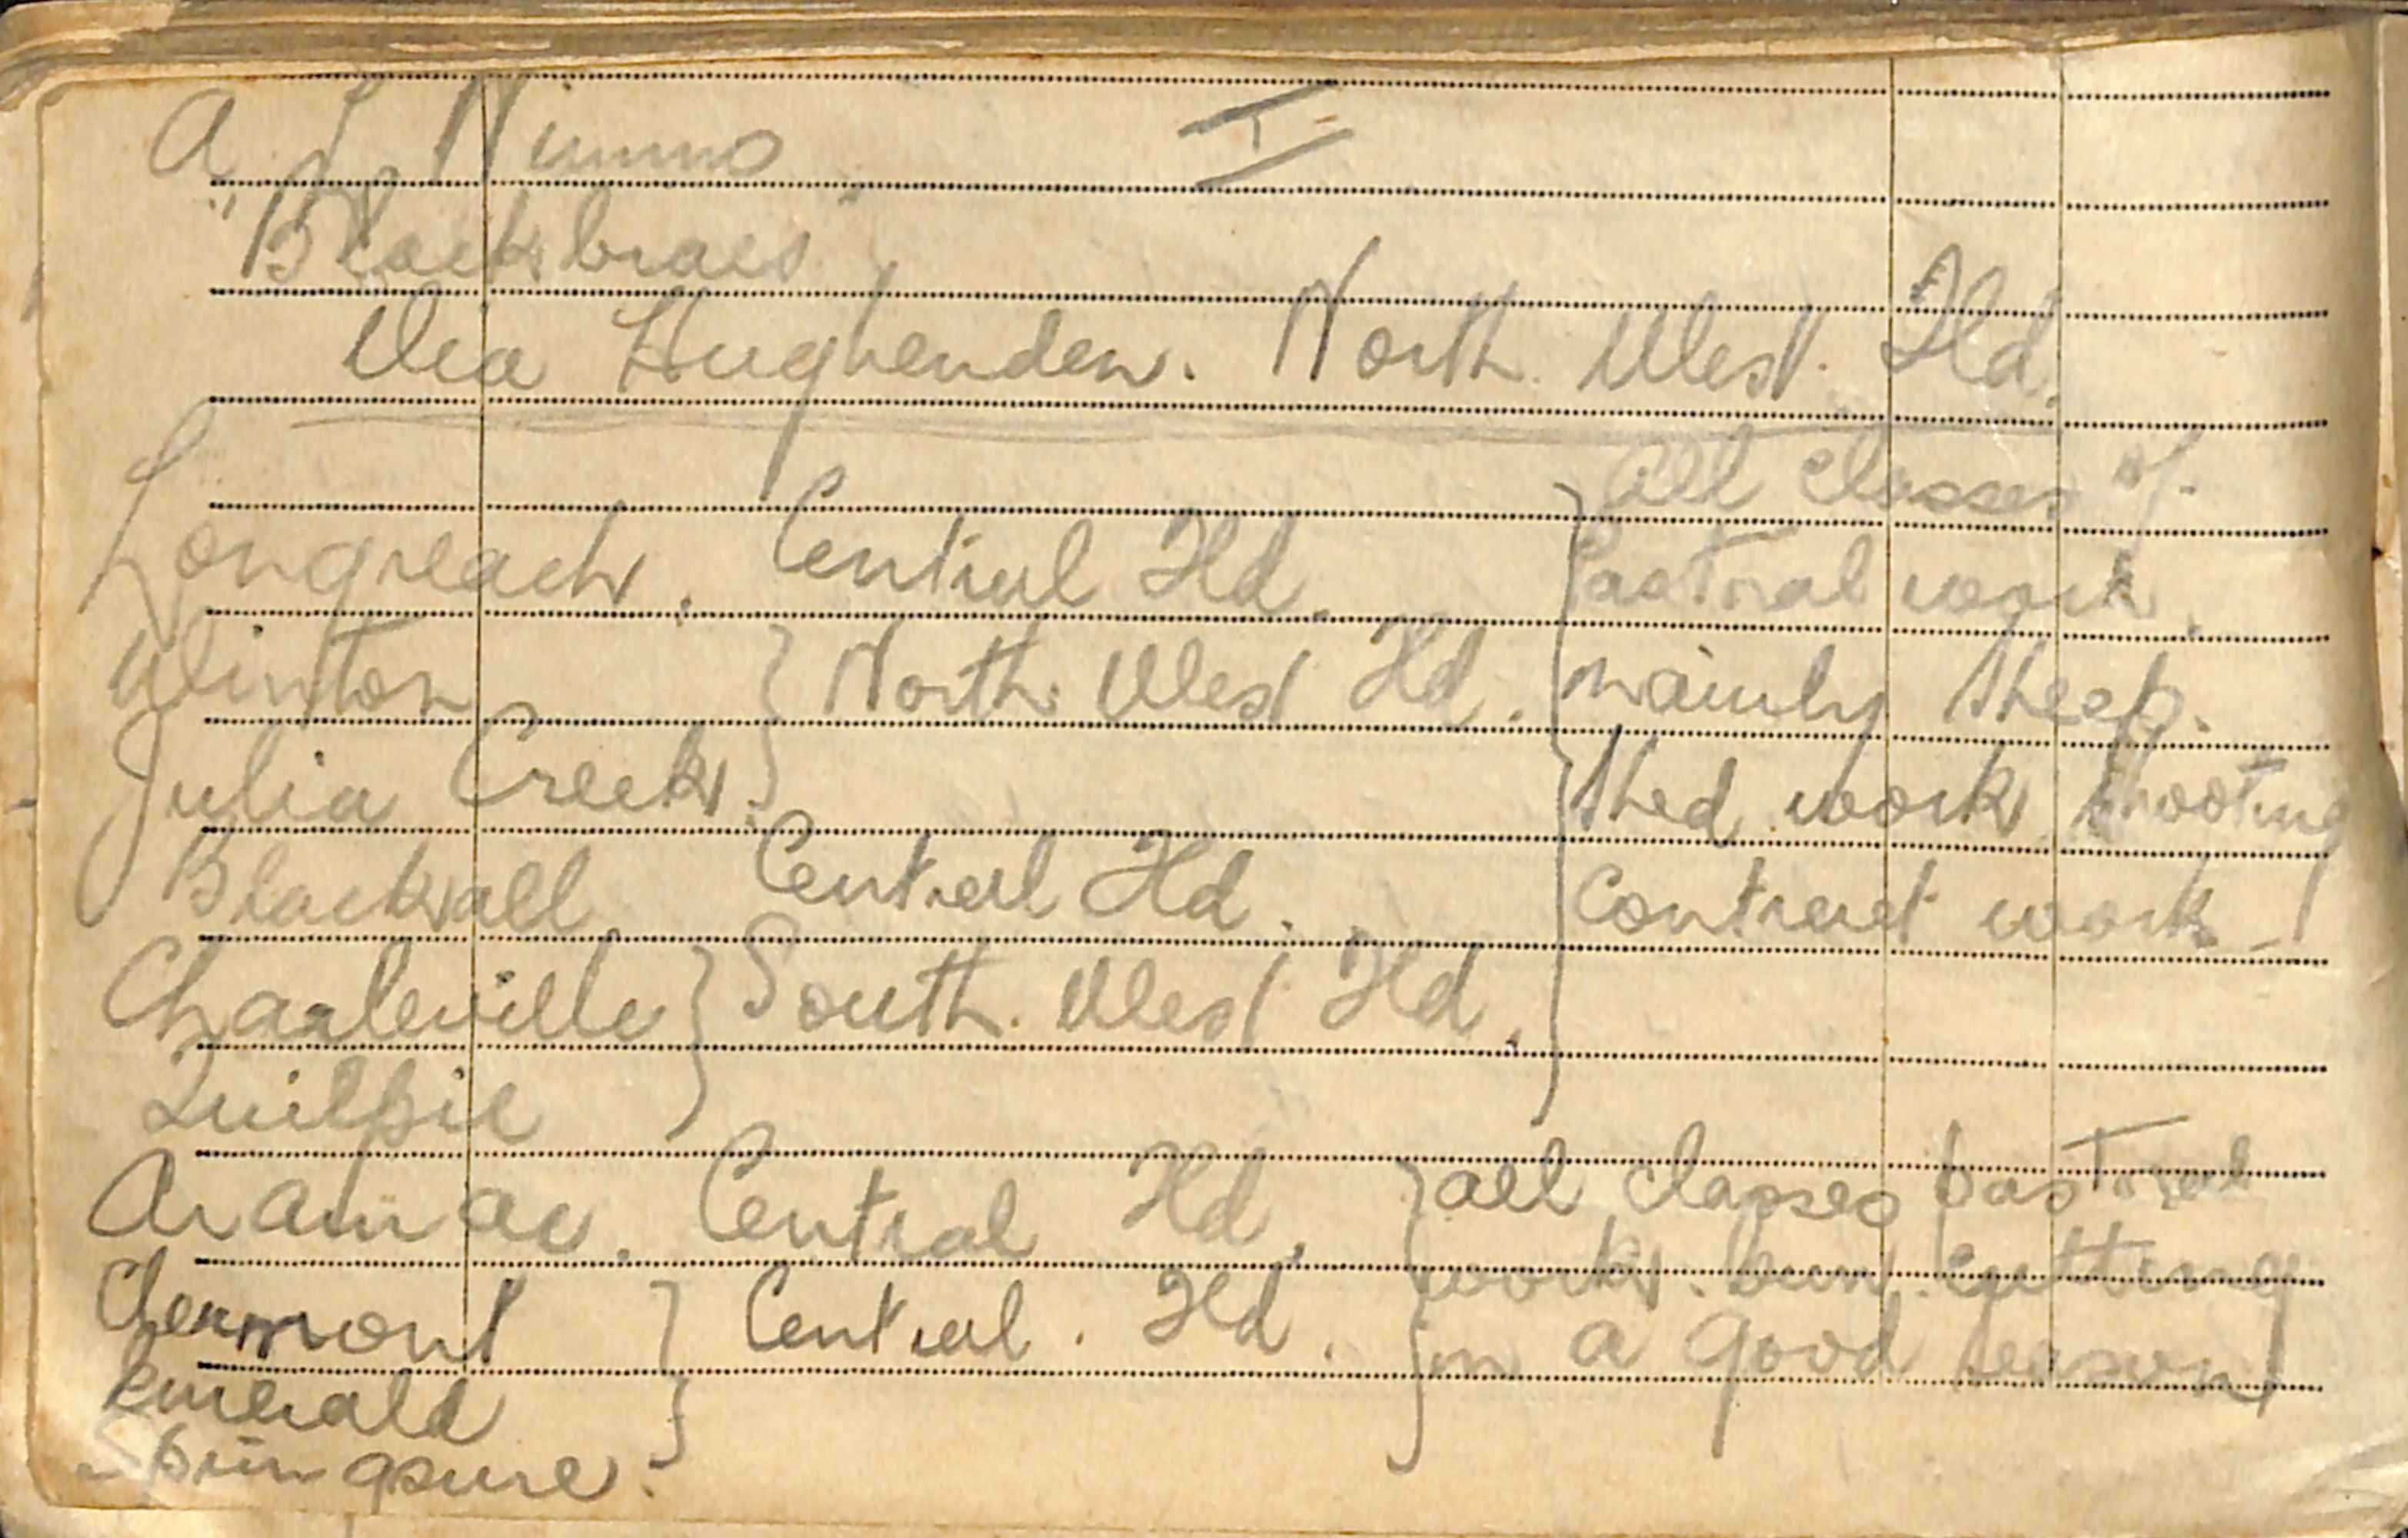 A J Nimmo I
"Blackbraes"
Via Hughenden. North West. Qld.
All classes of
Longreach. Central Qld. Pastral work,
Winton North West Qld. mainly sheep.
Julia Creek. Shed work shooting
Blackall Central Qld. Contract work
Charleville South. West Qld.
Quilpie
Aramac. Central Qld. all classes pastral
work. burr cutting
Clermont Central. Qld. in a good season
Emerald
Springsure.